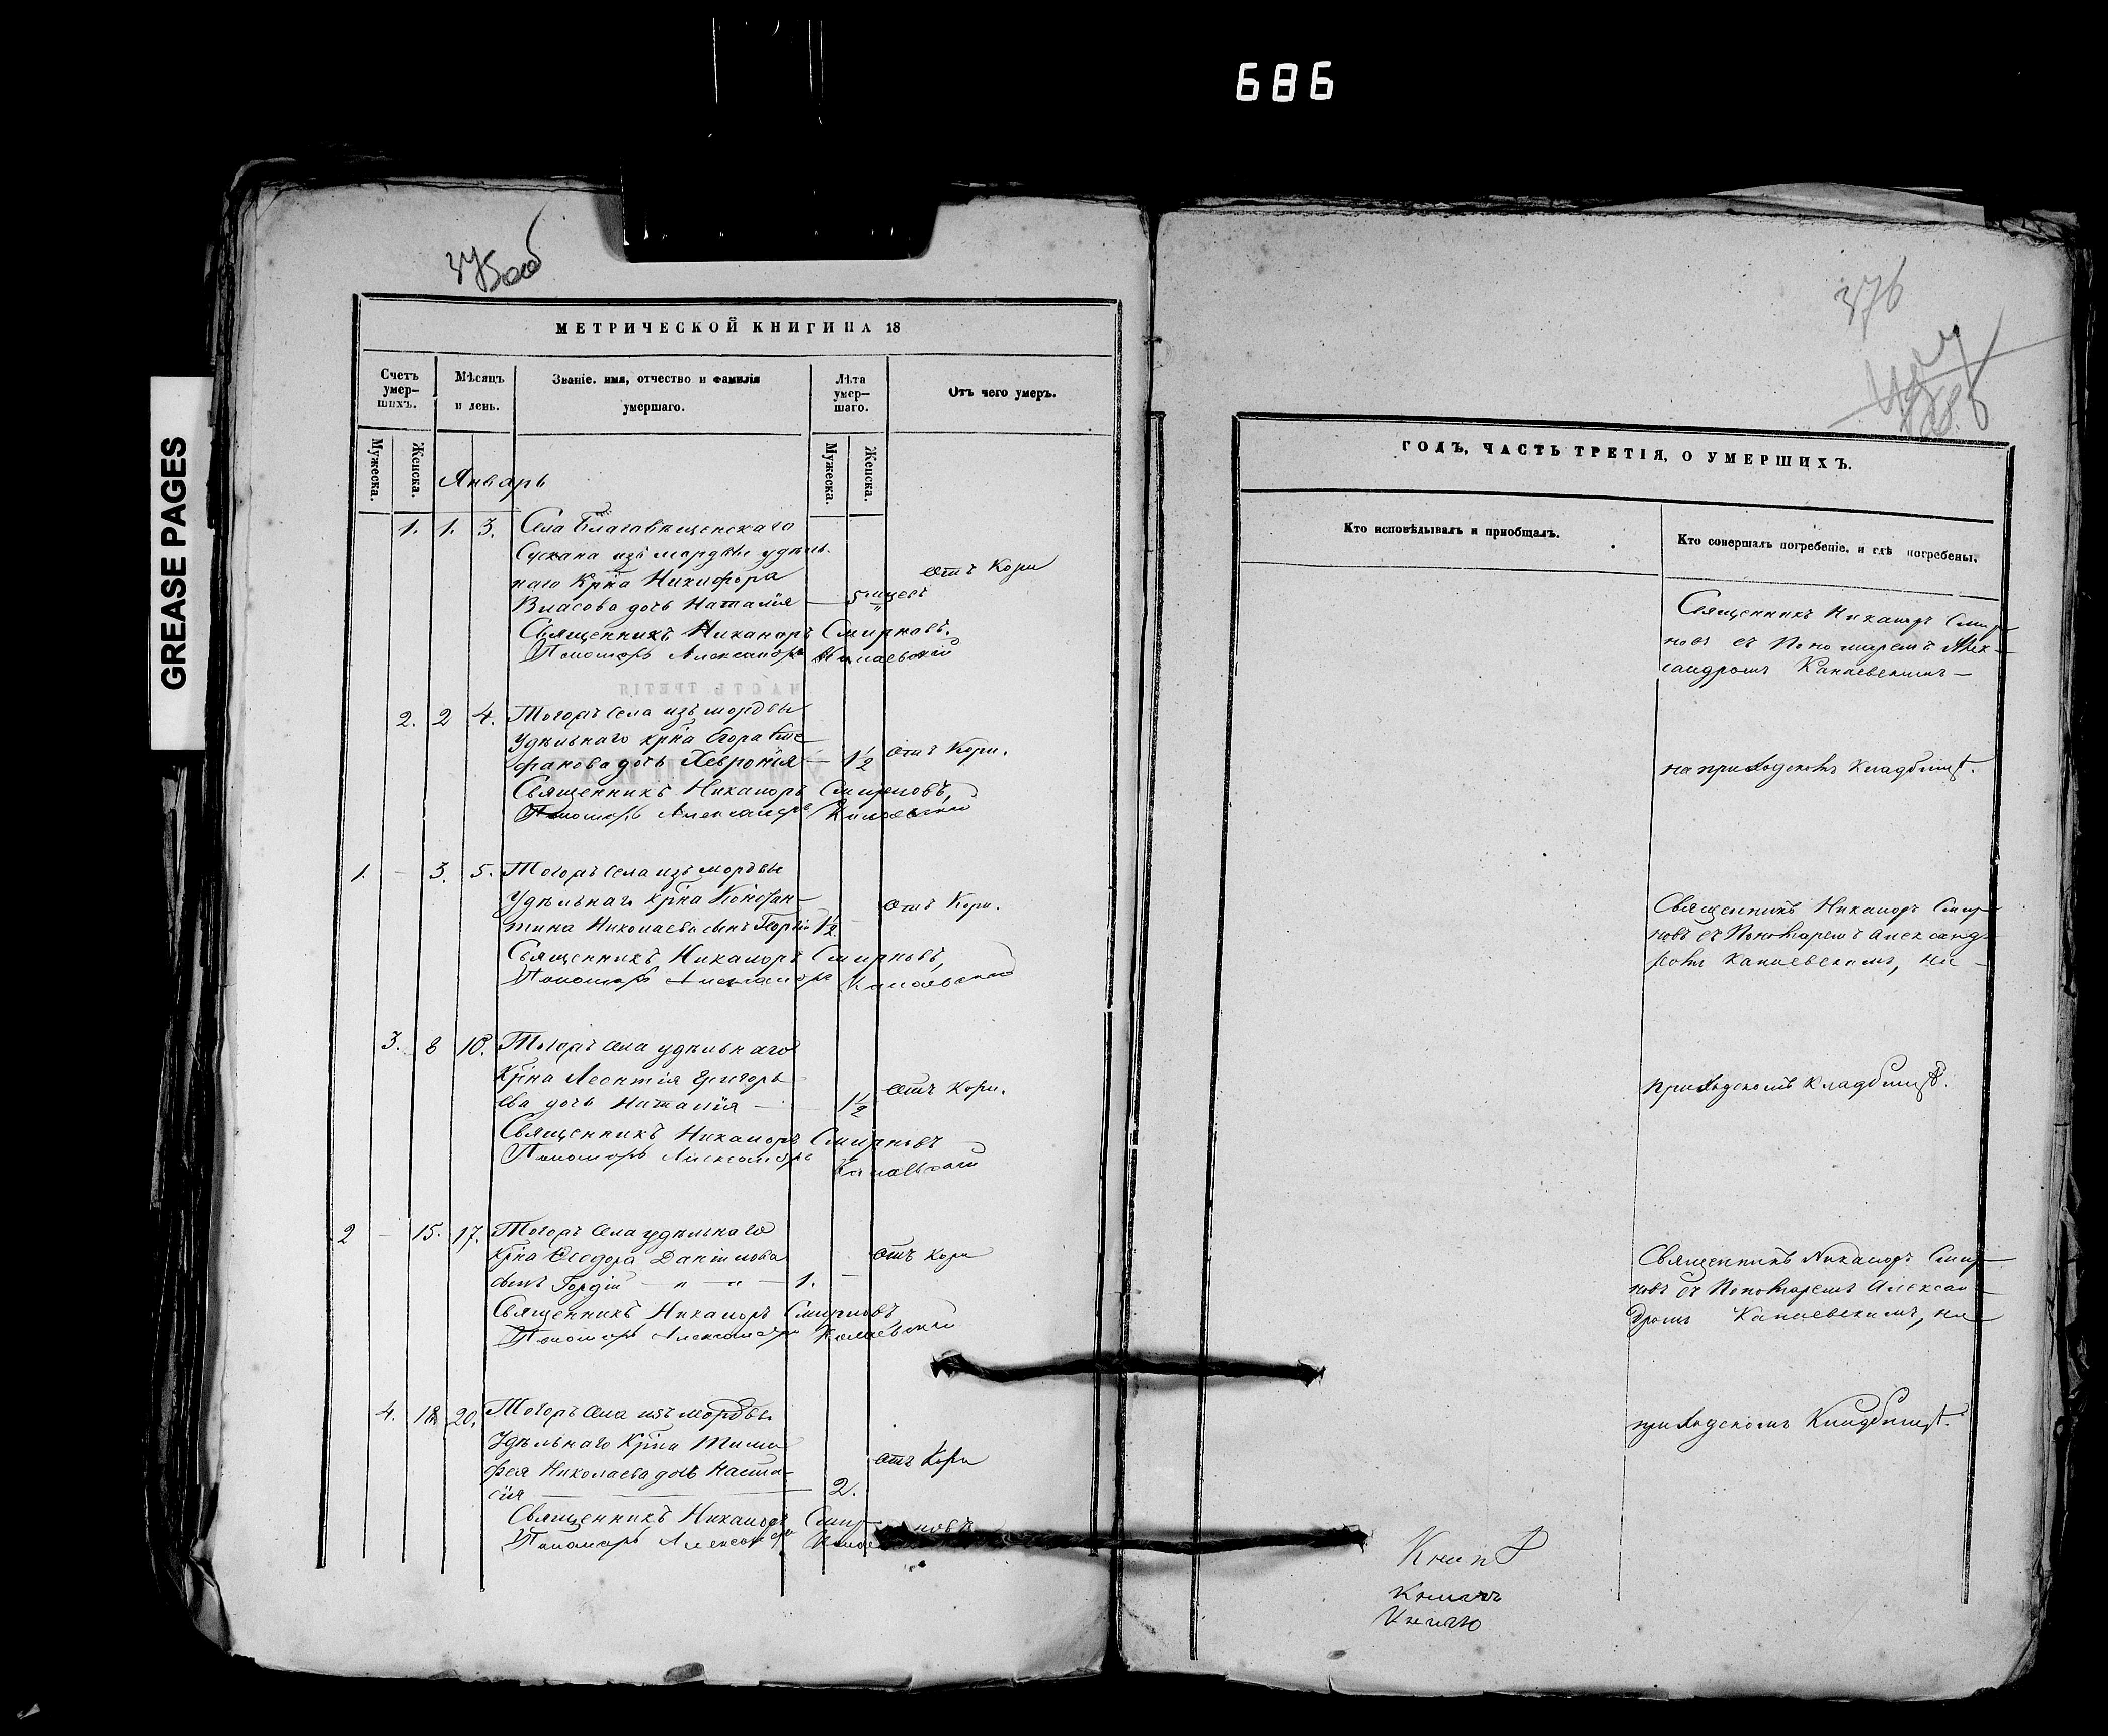 686
GREASE PAGES
375об
МЕТРИЧЕСКОЙ КНИГИ НА 18
Счетъ умер-
шихъ.
Мѣсяцъ
и день.
Званіе, имя, отчество и фамилія
умершаго.
Лѣта
умер-
шаго.
Отъ чего умеръ.
Мужеска.
Женска.
Мужеска.
Женска.
Январь
1. 1. 3. Села Благовѣщенскаго
Сускана изъ мордвы удѣль-
наго Крнa Никифора
отъ Кори
Власова дочь Наталія — 5
Священникъ Никаноръ Смирновъ.
Пономарь Александръ Канаевскій
2. 2 4. Тогожъ села изъ мордвы
Удѣльнаго крна Егора Сте
фанова дочь Хевронія — 1½ отъ Кори.
Священникъ Никаноръ Смирновъ,
Пономарь Александръ Канаевскій
1. – 3. 5. Тогожъ села изъ мордвы
Удѣльнаго крна Констан-
отъ Кори.
тина Николаева сынъ 1½
Священникъ Никаноръ Смирновъ,
Пономарь Александръ Канаевскій
3. 8 10. Тогожъ села удѣльнаго
Крна Леонтія Григорь
ева дочь Наталія — 1½ отъ Кори.
Священникъ Никаноръ Смирновъ
Пономарь Александръ Канаевскій
2 – 15. 17. Тогожъ села удѣльнаго
Крна Ѳеодора Данілова отъ Кори
сынъ Гордій — " — " — 1. –
Священникъ Никаноръ Смирновъ
Пономарь Александръ Канаевскій
4. 18 20. Тогожъ села изъ мордвы
Удѣльнаго Крна Тимо
фея Николаева дочь Наста- отъ Кори
сія — 2.
Священникъ Никаноръ Смирновъ
Пономарь Александръ
376
ГОДЪ, ЧАСТЬ ТРЕТІЯ, О УМЕРШИХЪ.
Кто исповѣдывалъ и приобщалъ.
Кто совершалъ погребеніе, и гдѣ погребены.
Священникъ Никаноръ Смир
новъ съ Пономаремъ Алек-
сандромъ Канаевскимъ —
на приходскомъ кладбищѣ.
Священникъ Никаноръ Смир
новъ съ Пономаремъ Александ-
ромъ Канаевскимъ, на –
приходскомъ кладбищѣ.
Священникъ Никаноръ Смир
новъ съ Пономаремъ Алексан-
дромъ Канаевскимъ, на
приходскомъ Кладбищѣ.